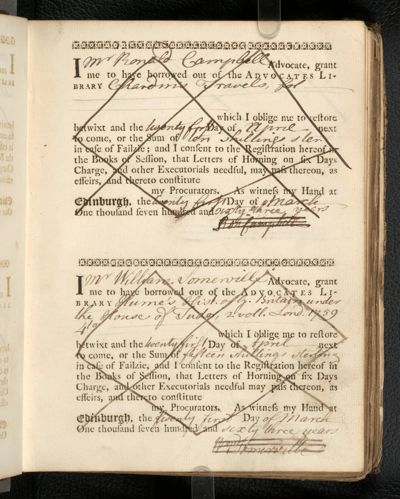 I Mr Ronald Campbell Advocate, grant
me to have borrowed out of the ADVOCATES LI-
BRARY Chardin's Travels, fol
which I oblige me to restore
betwixt and the twenty first Day of April next
to come, or the Sum of ten Shillings ster:
in case of Failzie; and I consent to the Registration hereof in
the Books of Session, that Letters of Horning on six Days
Charge, and other Executorials needful, may pass thereon, as
effeirs, and thereto constitute
my Procurators. As witness my Hand at
Edinburgh, the twenty first Day of March
One thousand seven hundred and sixty three years
Ron Campbell
I Mr William Somerville Advocate, grant
me to have borrowed out of the ADVOCATES LI-
BRARY Hume's Hist. of G. Britain under
the House of Tudor, 2 voll. Lond. 1759
4to
which I oblige me to restore
betwixt and the twenty first Day of April next
to come, or the Sum of fifteen shillings sterling
in case of Failzie, and I consent to the Registration hereof in
the Books of Session, that Letters of Horning on six Days
Charge, and other Executorials needful may pass thereon, as
effeirs, and thereto constitute
my Procurators. As witness my Hand at
Edinburgh, the twenty first Day of March
One thousand seven hundred and sixty three years
Somerville